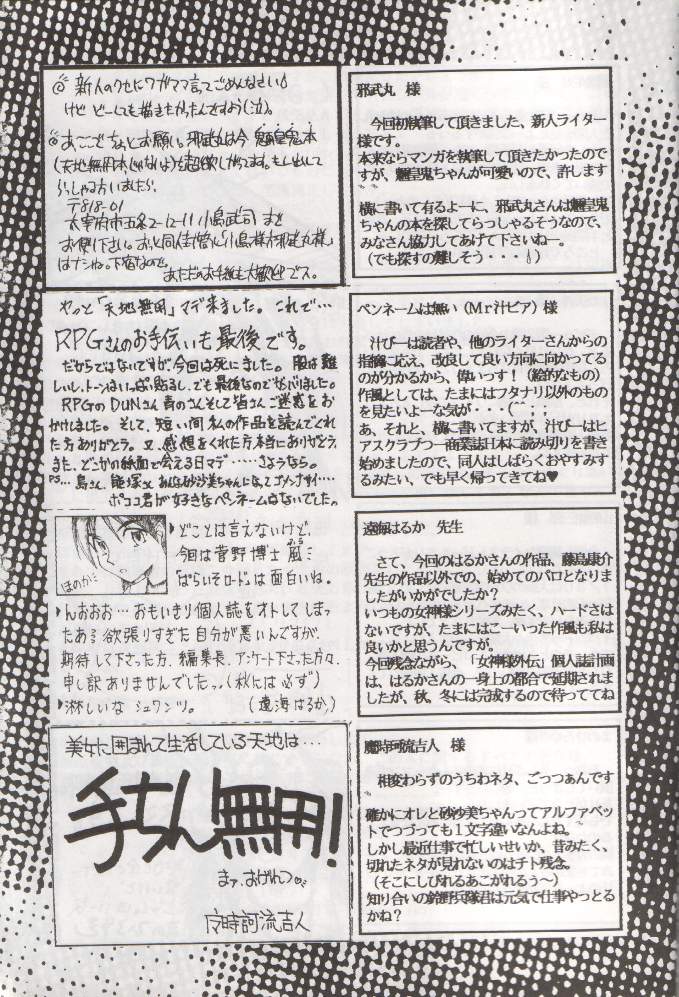 ◎新人のクセにワガママ言ってごめんなさい
けど どーしても描きたかったんですよう(泣)。
◎あとここでちょっとお願い。邪武丸は今 魎皇鬼本
(天地無用本じゃないよ)を超欲しがってます。もし出して
らっしゃる方いましたら
お便り下さい。
またただのお手紙も大歓迎デス。
邪武丸 様
今回初執筆して頂きました、新人ライター
様です。
本来ならマンガを執筆して頂きたかったので
すが、魎皇鬼ちゃんが可愛いので、許します
横に書いて有るよーに、邪武丸さんは魎皇鬼
ちゃんの本を探してらっしゃるそうなので、
みなさん協力してあげて下さいねー。
(でも探すの難しそう・・・)
やっと「天地無用」マデ来ました。これで…
RPGさんのお手伝いも最後です。
だからではないですが、今回は死にました。服は難
しいし、トーンはいっぱい貼るし、でも最後なのでがんばりました。
RPGのDUNさん 青のさんそして皆さんご迷惑をお
かけしました。そして、短い間 私の作品を読んでくれ
た方ありがとう。又、感想をくれた方本当にありがとう。
また、どこかの紙面で会える日マデ……さようなら。
ポココ君が好きなペンネームはないでした。
ペンネームは無い(Mr汁ビア)様
汁びーは読者や、他のライターさんからの
指摘に応え、改良して良い方向に向かってる
のが分かるから、偉いっす!(絵的なもの)
作風としては、たまにはフタナリ以外のもの
を見たいよーな気が・・・(^；；
あ、それと、横に書いてますが、汁びーはヒ
アスクラブつー商業誌日本に読み切りを書き
始めましたので、同人はしばらくおやすみす
るみたい、でも早く帰ってきてね♥
ほのか…
どことは言えないけど、
今回は菅野博士 風…
「ぱらいそロード」は面白いね。
んおおお…おもいきり個人誌をオトしてしまっ
たある 欲張りすぎた自分が悪いんですが、
期待して下さった方、編集長、アンケート下さった方々、
申し訳ありませんでしたっ。(秋には必ず)
淋しいな シュワンツ。 (遠海はるか)
遠海はるか 先生
さて、今回のはるかさんの作品、藤島康介
先生の作品以外での、始めてのパロとなりま
したがいかがでしたか?
いつもの女神様シリーズみたく、ハードさは
ないですが、たまにはこーいった作風も私は
良いかと思うんですが。
今回残念ながら、「女神様外伝」個人誌計画
は、はるかさんの一身上の都合で延期されま
したが、秋、冬には完成するので待っててね
美女に囲まれて生活している天地は…
手ちん無用!
まァ、おげれつ
魔時珂流吉人 様
相変わらずのうちわネタ、ごっつぁんです
確かにオレと砂沙美ちゃんってアルファベッ
トでつづっても1文字違いなんよね。
しかし最近仕事で忙しいせいか、昔みたく、
切れたネタが見れないのはチト残念。
(そこにしびれるあこがれるう〜)
知り合いの鈴野兵隊君は元気で仕事やっとる
かね?